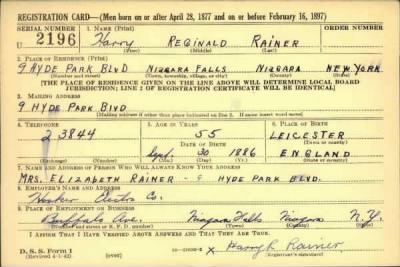 REGISTRATION CARD—(Men born on or after April 28, 1877 and on or before February 16, 1897)
SERIAL NUMBER 1. NAME (Print) ORDER NUMBER
U 2196 Harry REGINALD RAINER
(First) (Middle) (Last)
2. PLACE OF RESIDENCE (Print)
9 HYDE PARK BLVD NIAGARA FALLS NIAGARA NEW YORK
(Number and street) (Town, township, village, or city) (County) (State)
[THE PLACE OF RESIDENCE GIVEN ON THE LINE ABOVE WILL DETERMINE LOCAL BOARD
JURISDICTION; LINE 2 OF REGISTRATION CERTIFICATE WILL BE IDENTICAL]
3. MAILING ADDRESS
9 HYDE PARK BLVD
(Mailing address if other than place indicated on line 2. If same insert word same)
4. TELEPHONE 5. AGE IN YEARS 6. PLACE OF BIRTH
23844 55 LEICESTER
DATE OF BIRTH (Town or county)
Sept. 30 1886 ENGLAND
(Exchange) (Number) (Mo.) (Day) (Yr.) (State or country)
7. NAME AND ADDRESS OF PERSON WHO WILL ALWAYS KNOW YOUR ADDRESS
MRS. ELIZABETH RAINER - 9 HYDE PARK BLVD.
8. EMPLOYER'S NAME AND ADDRESS
Hooker Electro Co.
9. PLACE OF EMPLOYMENT OR BUSINESS
Buffalo Ave. Niagara Falls Niagara N.Y.
(Number and street or R. F. D. number) (Town) (County) (State)
I AFFIRM THAT I HAVE VERIFIED ABOVE ANSWERS AND THAT THEY ARE TRUE.
D. S. S. Form 1
(Revised 4-1-42) (over) x Harry R. Rainer
(Registrant's signature)